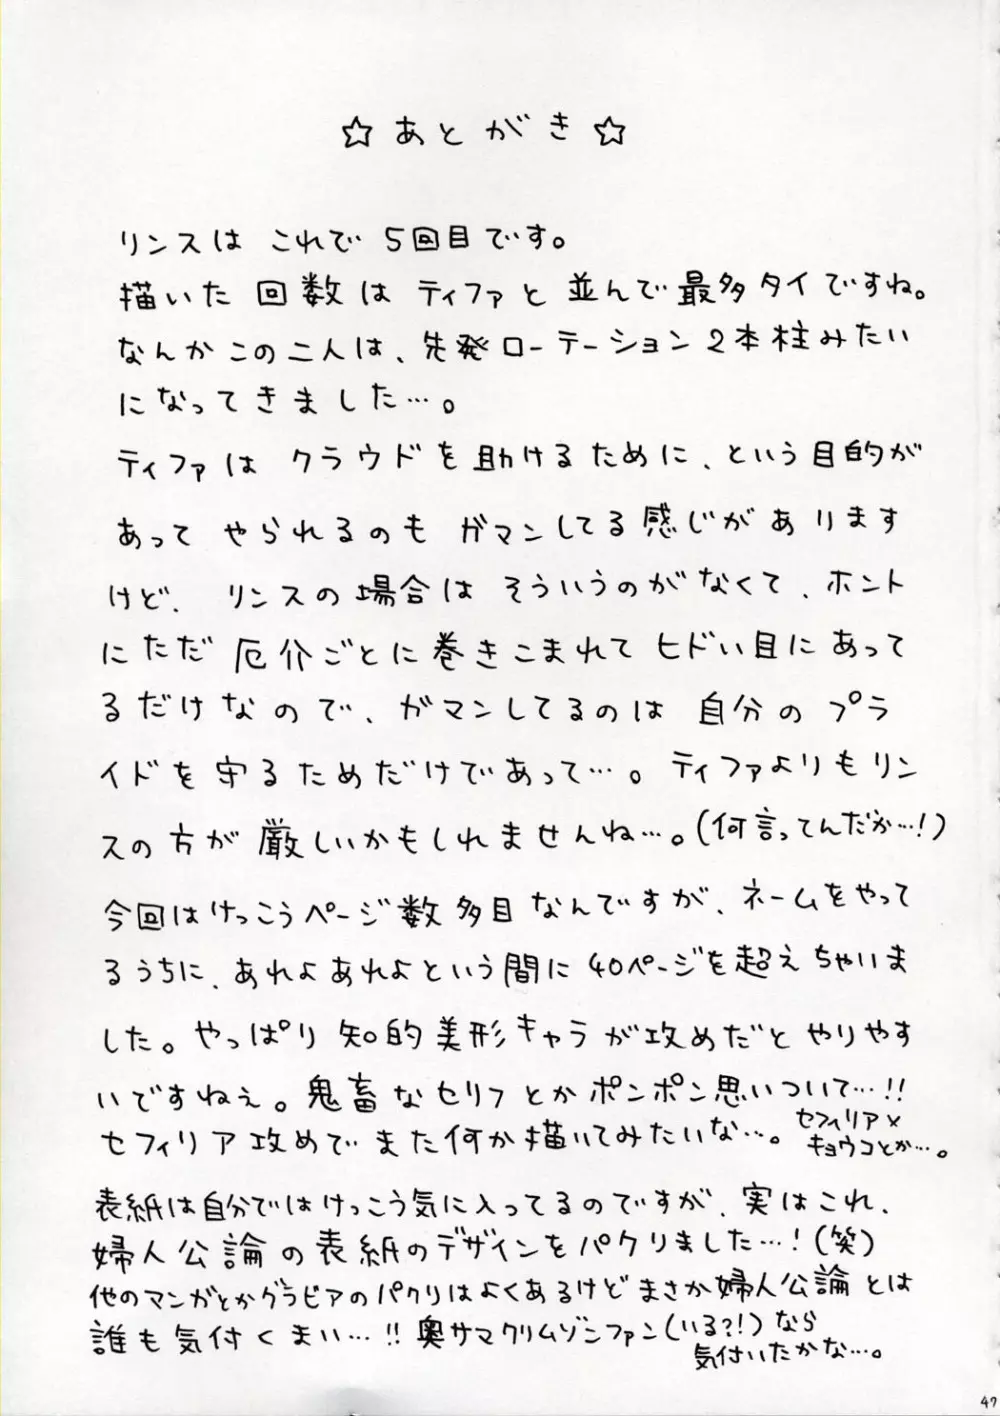 ☆あとがき☆
リンスは これで 5回目です。
描いた 回数は ティファと 並んで 最多タイですね。
なんか この 二人は、先発ローテーション 2本柱みたい
になってきました…。
ティファは クラウドを助けるために、という目的が
あって やられるのも ガマンしてる 感じがあります
けど、リンスの場合は そういうのがなくて、ホント
にただ 厄介ごとに巻きこまれて ヒドい目にあって
るだけなので、ガマンしてるのは 自分の プラ
イドを 守るためだけであって…。ティファよりもリン
スの方が 厳しいかもしれませんね…。(何言ってんだか…!)
今回はけっこうページ数多目なんですが、ネームをやって
るうちに、あれよあれよという間に40ページを超えちゃいま
した。やっぱり 知的美形キャラが攻めだと やりやす
いですねぇ。鬼畜なセリフとかポンポン思いついて…!!
セフィリア攻めで また何か描いてみたいな…。セフィリア×
キョウコとか…。
表紙は自分ではけっこう気に入ってるのですが、実はこれ、
婦人公論の表紙のデザインをパクりました…!(笑)
他のマンガとかグラビアのパクりはよくあるけど まさか婦人公論とは
誰も気付くまい…!!奥サマクリムゾンファン(いる?!)なら
気付いたかな…。
47